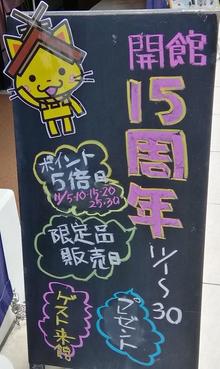 開館
15周年
11/1～30
ポイント
5倍日
11/5・10・15・20
25・30
限定品
販売日
ゲスト来館
プレゼント